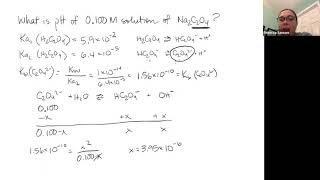 What is pH of 0.100 M solution of Na₂C₂O₄?
Ka₁ (H₂C₂O₄) = 5.9×10⁻² H₂C₂O₄ ⇌ HC₂O₄⁻ + H⁺
Ka₂ (HC₂O₄⁻) = 6.4×10⁻⁵ HC₂O₄⁻ ⇌ C₂O₄²⁻ + H⁺
K_b (C₂O₄²⁻) = Kw/Ka₂ = 1×10⁻¹⁴/6.4×10⁻⁵ = 1.56×10⁻¹⁰ = K_b (C₂O₄²⁻)
C₂O₄²⁻ + H₂O ⇌ HC₂O₄⁻ + OH⁻
0.100
-x +x +x
0.100-x x x
1.56×10⁻¹⁰ = x²/0.100-x x = 3.95×10⁻⁶